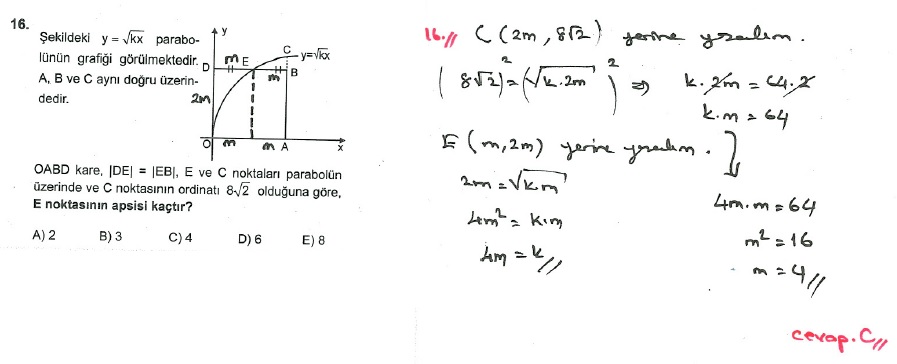 16.
Şekildeki y = √kx parabo-
lünün grafiği görülmektedir.
A, B ve C aynı doğru üzerin-
dedir.
y
C
y=√kx
D
m E
B
m
2m
O
m
m A
x
OABD kare, |DE| = |EB|, E ve C noktaları parabolün
üzerinde ve C noktasının ordinatı 8√2 olduğuna göre,
E noktasının apsisi kaçtır?
A) 2 B) 3 C) 4 D) 6 E) 8
16.// C(2m, 8√2) yerine yazalım.
(8√2)² = (√k.2m)² ⇒ k.2m = 64.2
k.m = 64
E(m,2m) yerine yazalım.
2m = √k.m
4m² = k.m
4m = k//
4m.m = 64
m² = 16
m = 4//
cevap.C//